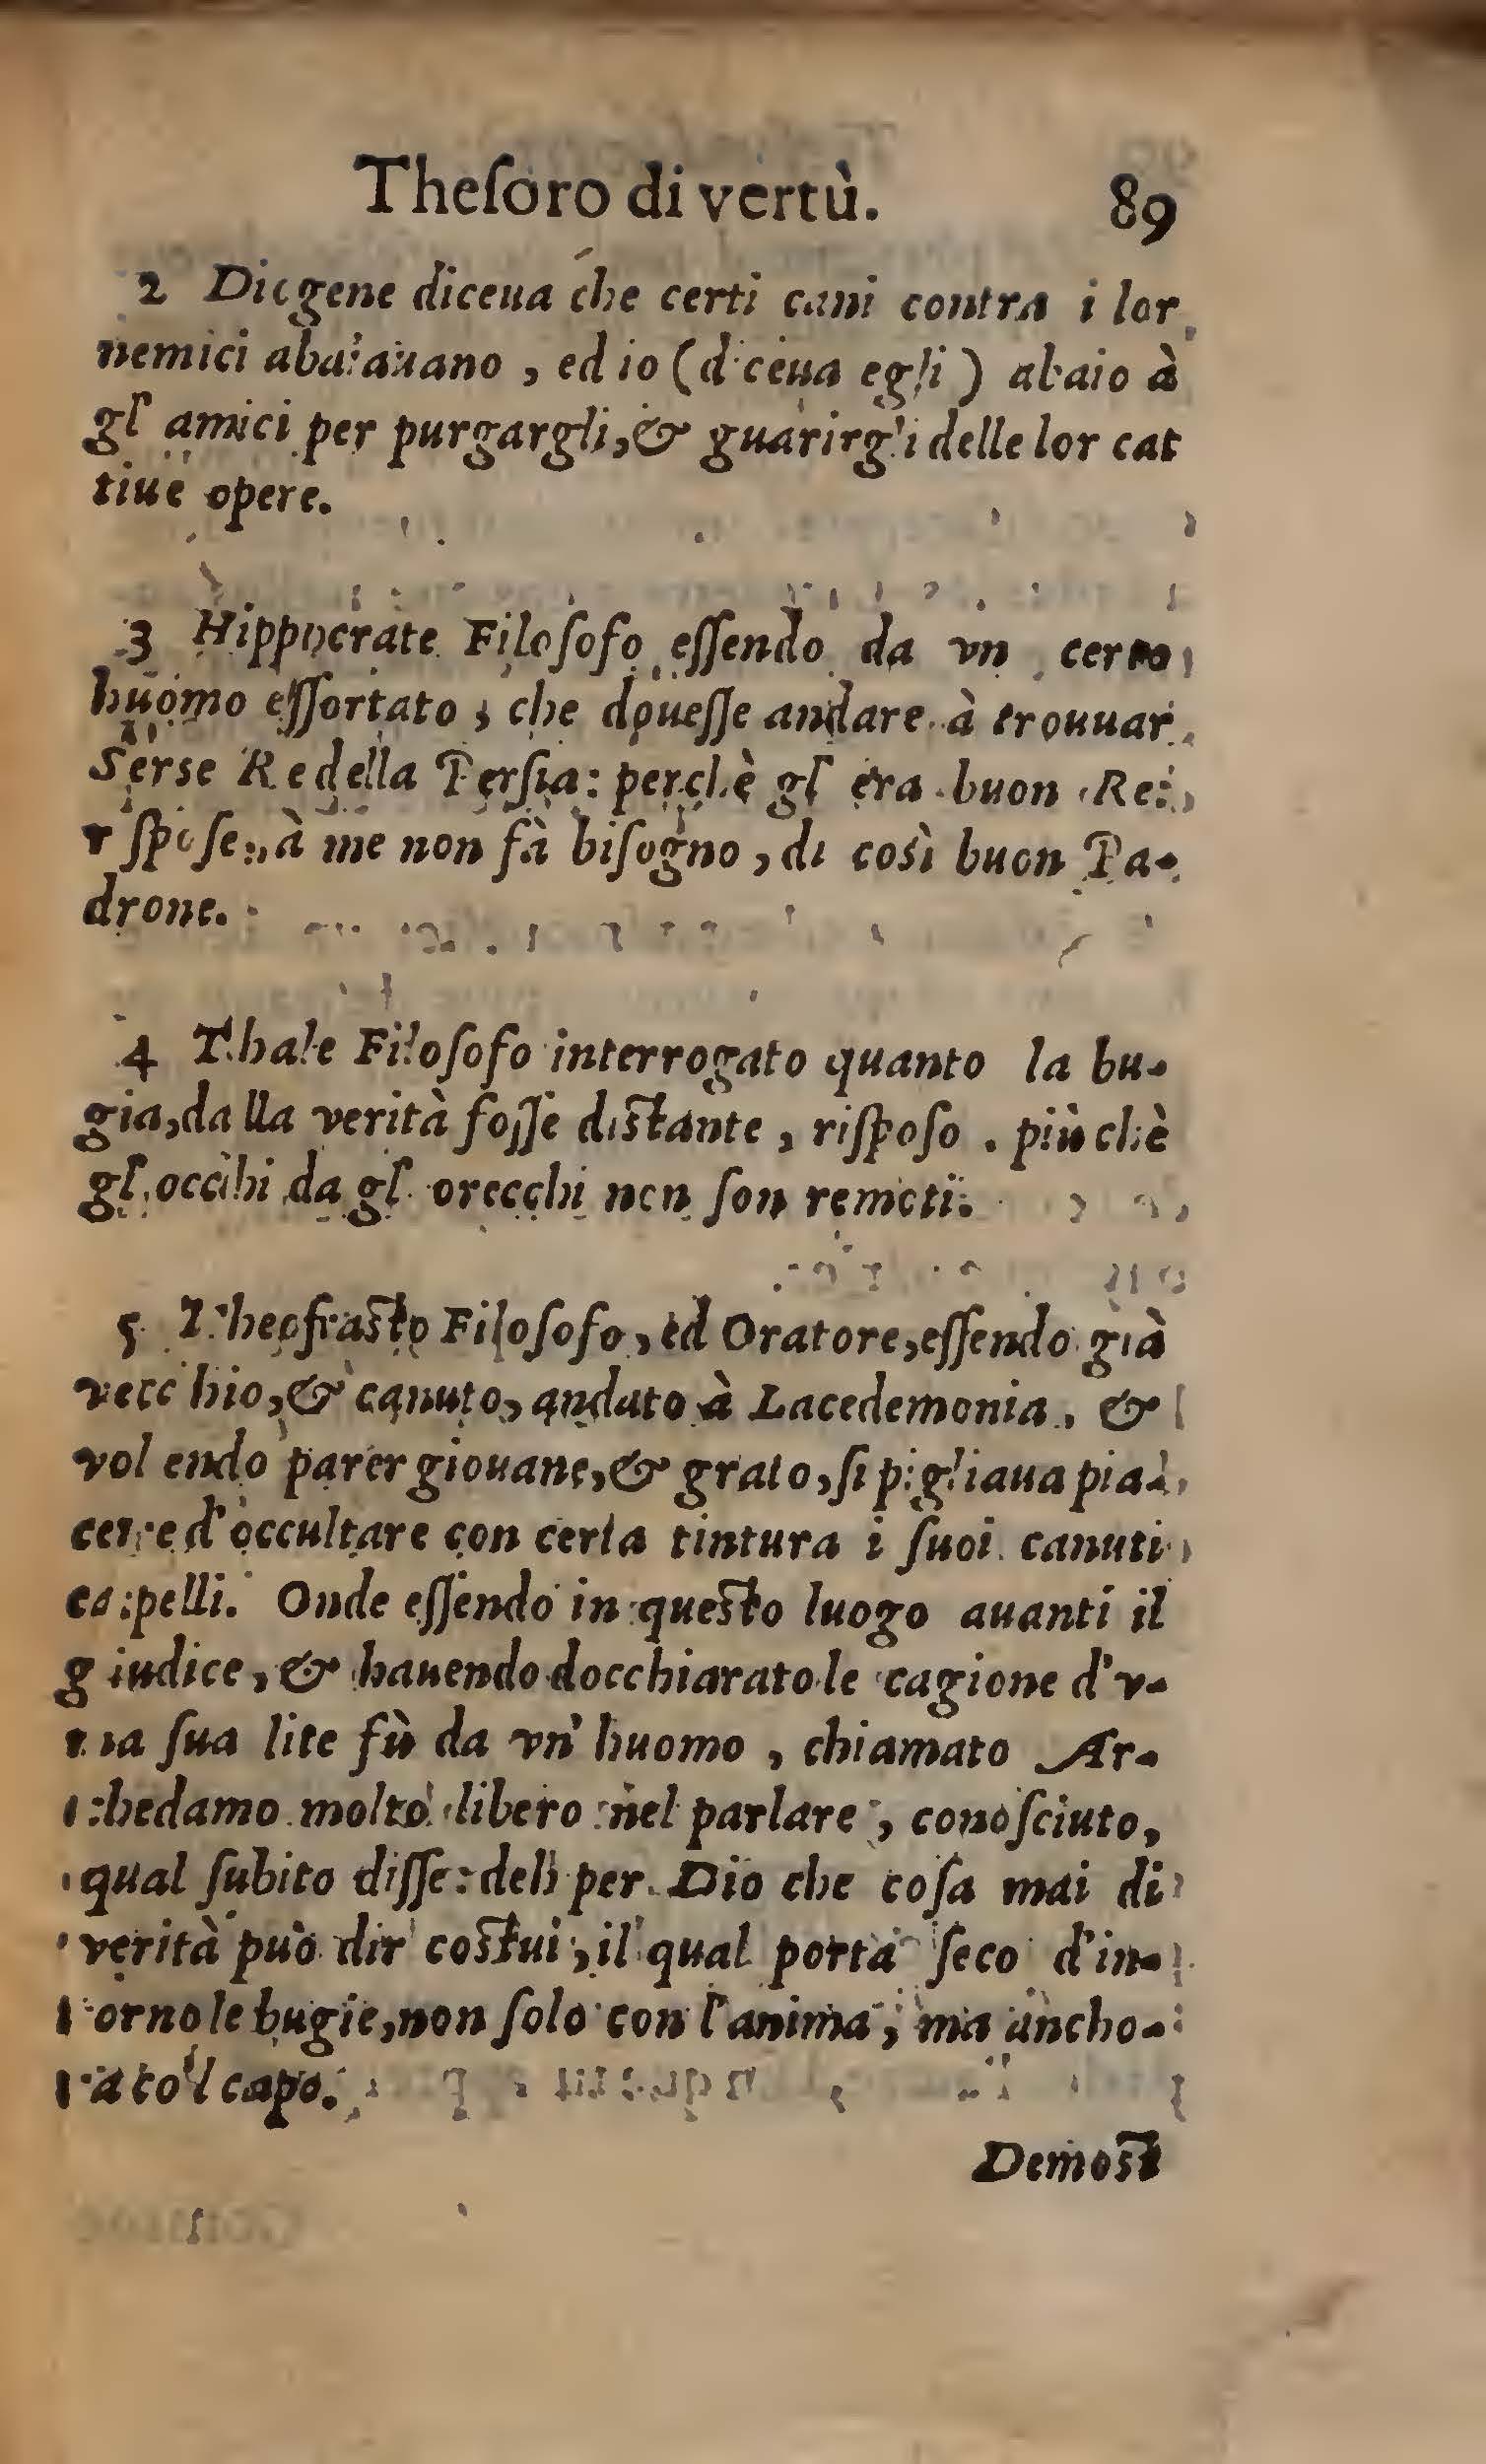 Theſoro di vertù. 89
2 Diogene diceua che certi cani contra i lor
nemici abaiauano , ed io (diceua egli) abaio à
gl' amici per purgargli, & guarirgli delle lor cat
tiue opere.
3 Hippocrate Filoſofo eſſendo da vn certo
huomo eſſortato , che doueſſe andare à trouuar
Serse Re della Perſia: perchè gl' era buon Re:
riſpoſe:, à me non fà biſogno , di così buon Pa-
drone.
4 Thale Filoſofo interrogato quanto la bu-
gia, dalla verità foſſe distante , riſpoſo . più chè
gl' occihi da gl' orecchi non ſon remoti.
5 Theofrasto Filoſofo , ed Oratore, eſſendo già
vecchio, & canuto, andato à Lacedemonia. &
volendo parer giouane, & grato, ſi pigliaua pia-
cere d'occultare con certa tintura i ſuoi canuti
capelli. Onde eſſendo in questo luogo auanti il
giudice, & hauendo docchiarato le cagione d'v-
na ſua lite fù da vn' huomo , chiamato Ar-
chedamo molto libero nel parlare , conoſciuto,
qual ſubito diſſe: deh per Dio che coſa mai di
verità può dir costui, il qual porta ſeco d'in-
torno le bugie, non ſolo con l'anima, ma ancho-
ra co'l capo.
Demost